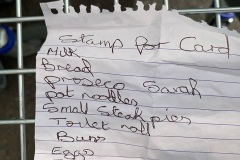 Stamp for Card
Milk
Bread
proseco Sarah
pot nottles
Small Steak pies
Toilet roll
Buns
Eggs